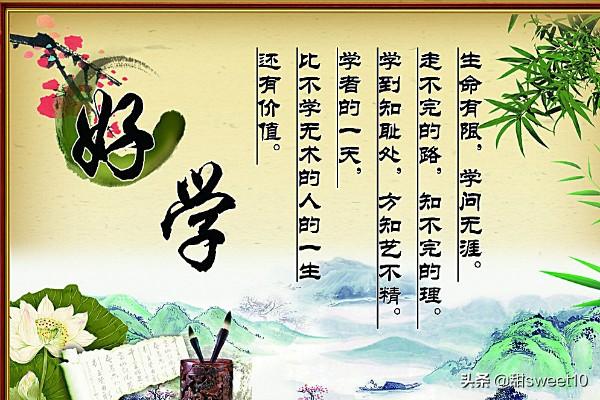 好学
生命有限，学问无涯。
走不完的路，知不完的理。
学到知耻处，方知艺不精。
学者的一天，
比不学无术的人的一生
还有价值。
头条 @甜sweet10